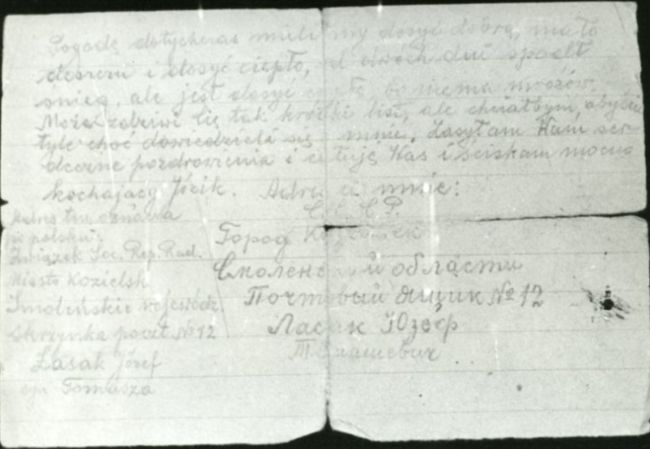 Pogodę dotychczas mieliśmy dosyć dobrą, mało
deszczu i dosyć ciepło, od dwóch dni spadł
śnieg, ale jest dosyć ciepło, bo niema mrozów.
Może zdziwi Cię tak krótki list, ale chciałbym, abyście
tyle choć dowiedzieli się o mnie. Zasyłam Wam ser-
deczne pozdrowienia i całuję Was i ściskam mocno
kochający Józik. Adres do mnie:
С.С.С.Р.
Город Козельск
Смоленской области
Почтовый Ящик № 12
Ласак Юзеф
Томашевич
Adres ten oznacza
po polsku:
Związek Soc. Rep. Rad.
Miasto Kozielsk
Smoleńskie wojewódz.
skrzynka poczt № 12
Lasak Józef
syn Tomasza